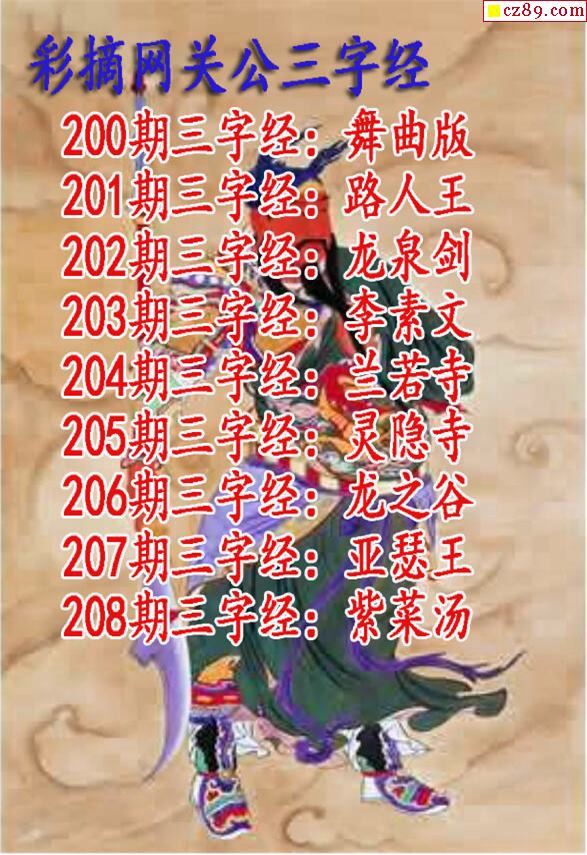 cz89.com
彩摘网关公三字经
200期三字经：舞曲版
201期三字经：路人王
202期三字经：龙泉剑
203期三字经：李素文
204期三字经：兰若寺
205期三字经：灵隐寺
206期三字经：龙之谷
207期三字经：亚瑟王
208期三字经：紫菜汤